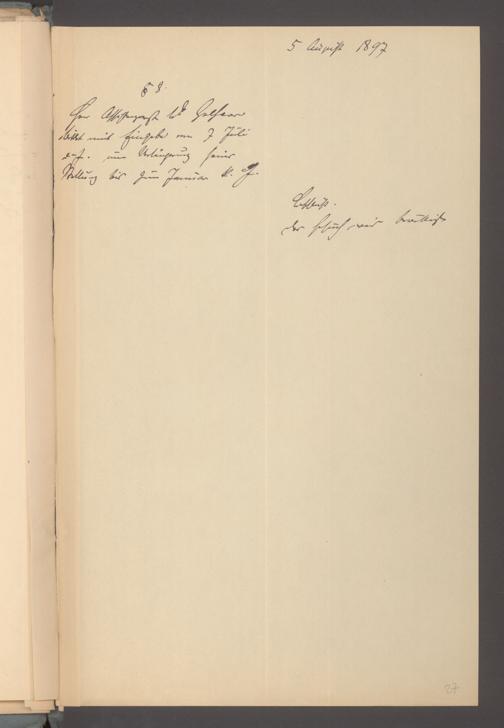 5 August 1897
§ 8.
Herr Assistenzarzt
bittet mit Eingabe vom 7 Juli
d. J. um Verlängerung seiner
Stellung bis zum Januar k. J.
Beschluß.
Das Gesuch wird bewilligt
27